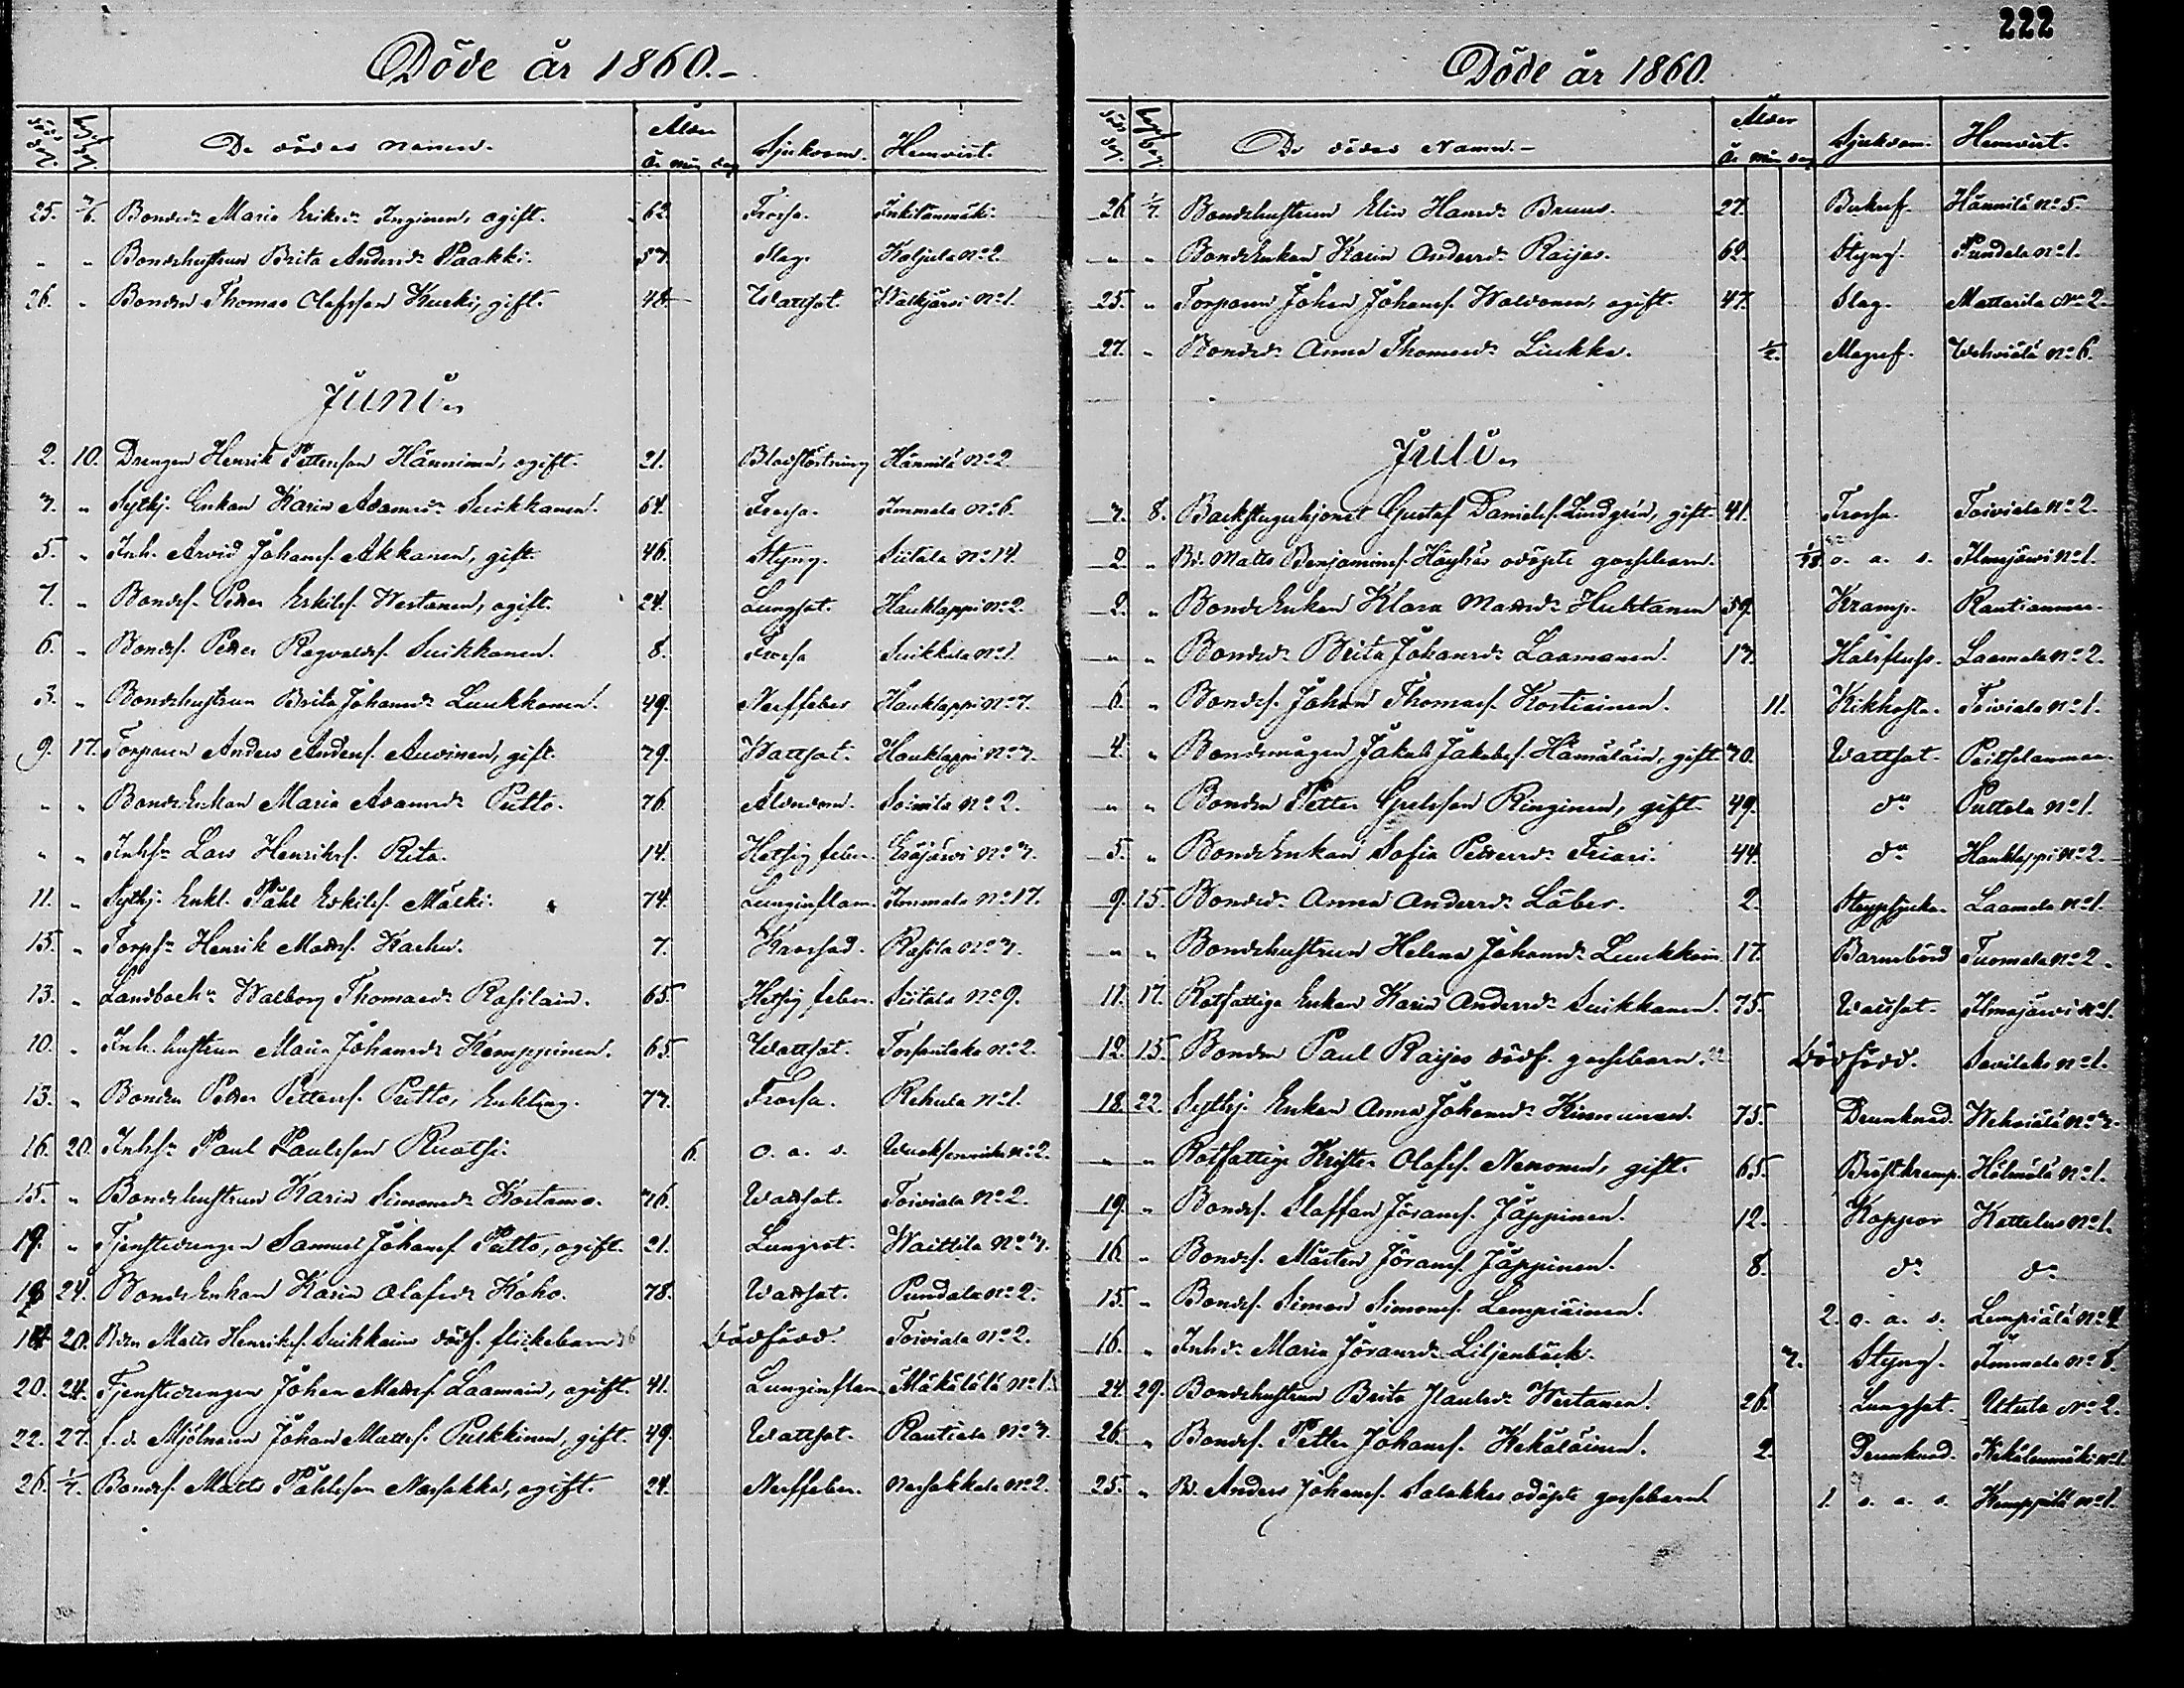 222
Döde år 1860.-
döds dag. begr. dag. De dödas namn. Ålder år mån dag Sjukdom. Hemvist.
25. 3/6. Bonded:r Maria Eriksd:r Inginen, ogift. 62. Frossa. Inkilänmäki.
" " Bondehustrun Brita Andersd:r Paakki. 57. Slag. Kaljula No 2.
26. " Bonden Thomas Olofsson Kurki, gift. 42. Wattsot. Wälkjärvi No 1.
Juni.
2. 10. Drengen Henrik Pettersson Hänninen, ogift. 21. Blodstörtning Hännilä No 2.
3. " Sythj. Enkan Karin Adamsd:r Suikkanen. 64. Frossa. Immala No 6.
5. " Inh. Arvid Johansf. Akkanen, gift. 46. Styng. Siitala No 14.
7. " Bondes. Petter Eskilsf. Wertanen, ogift. 24. Lungsot. Hauklappi No 2.
6. " Bondes. Petter Ragvaldsf. Suikkanen. 8. Frossa Suikkala No 1.
3. " Bondehustrun Brita Johansd:r Luukkanen. 49. Nerffeber Hauklappi No 7.
9. 17. Torparen Anders Andersf. Auvinen, gift. 79. Wattsot. Hauklappi No 3.
" " BondeEnkan Maria Adamsd:r Putto. 76. Ålderdom. Soinila No 2.
" " Inhs:n Lars Henriksf. Rita. 14. Hetsig feber. Eräjärvi No 3.
11. " Sythj. Enkl. Påhl Eskilsf. Mälki. 74. Lunginflam. Immala No 17.
15. " Torps:n Henrik Mattsf. Karhu. 7. Rasila No 3.
13. " Walborg Thomasd:r Rasilain. 65. Hetsig feber. Siitala No 9.
10. " Inh. hustrun Maria Johansd:r Kemppinen. 65. Wattsot. No 2.
13. " Bonden Petter Pettersf. Putto, Enkling. 77. Frossa. Rehula No 1.
16. 20. Inhs:n Paul Paulsson Ruatsi. 6. o. a. s. Wuoksenniska No 2.
15. " Bondehustrun Karin Simonsd:r Kostamo. 76. Wattsot. Toiviala No 2.
19. " Tjenstedrengen Samuel Johansf. Putto, ogift. 21. Lungsot. Waittila No 3.
24. BondeEnkan Karin Olofsd:r Koho. 78. Wattsot. Pundala No 2.
14 20. Bdn Matts Henriksf. Suikkains dödf. flickebarn Dödfödd. Toiviala No 2.
20. 24. Tjenstedrengen Johan Mattsf. Laamain, ogift. 41. Lunginflam. Mäkälälä No 1.
22. 27. f. d. Mjölnaren Johan Mattsf. Pulkkinen, gift. 49. Wattsot. Rautiala No 3.
26. 1/7. Bondes. Matts Påhlsson Narsakka, ogift. 24. Nerffeber. Narsakkala No 2.
Döde år 1860.
döds dag. begr. dag. De dödas namn.- Ålder år mån dag Sjukdom. Hemvist.
26. 1/7. Bondehustrun Elin Hansd:r Bruus. 27. Bukref. Hännilä No 5.
" " BondeEnkan Karin Andersd:r Raijas. 62. Styng. Pundala No 1.
25. " Torparen Johan Johansf. Waldonen, ogift. 47. Slag. Mattarila No 2.
27. " Bonded:r Anna Thomasd:r Liukka. 1/2. Magref. No 6.
Juli.
3. 8. Backstuguhjonet Gustaf Danielsf. Lindgrén, gift. 41. Frossa. Toiviala No 2.
2. " Bd. Matts Benjaminsf. odöpte gossebarn. o. a. s. Ilmejärvi No 1.
2. " BondeEnkan Klara Mattsd:r Huhtanen 59. Kramp. Rautianmaa.
" " Bonded:r Brita Johansd:r Laamanen. 17. Halsfluss. Laamala No 2.
6. " Bondes. Johan Thomasf. Kostiainen. 11. Kikhosta. Toiviala No 1.
4. " Bondemågen Jakob Jakobsf. Hämäläin, gift. 70. Wattsot.
" " Bonden Petter Ringinen, gift. 49. d:o Puttola No 1.
5. " BondeEnkan Sofia Pettersd:r Friari. 44. d:o Hauklappi No 2.
9. 15. Bonded:r Anna Andersd:r Löber. 2. Laamala No 1.
" " Bondehustrun Helena Johansd:r Luukkain. 17. Barnsbörd Tuomala No 2.
11. 17. Rotfattiga Enkan Karin Andersd:r Suikkanen. 75. Wattsot. Ilmejärvi No 1.
12. 15. Bonden Paul Raijas dödf. gossebarn. Dödfödd. Savilaks No 1.
18. 22. Sythj. Enkan Anna Johansd:r Kinnunen. 75. Drunknad. No 3.
" " Rotfattige Krister Olofsf. Nenonen, gift. 65. Bröstkramp. No 1.
19. " Bondes. Staffan Göransf. Jäppinen. 12. Koppor No 1.
16. " Bondes. Mårten Göransf. Jäppinen. 8. d:o d:o
15. " Bondes. Simon Simonsf. Lempiäinen. 2. o. a. s. Lempiälä No 4
16. " Inhd:r Maria Göransd:r Liljenbäck. 3. Styng. Immala No 8.
24. 29. Bondehustrun Brita Paulsd:r Wertanen. 26. Lungsot. Utula No 2.
26. " Bondes. Petter Johansf. Kekäläinen. 2. Drunknad. Kekäleenmäki No 1.
25. " Bd. Anders Johansf. Salakkas odöpte gossebarn. 1. o. a. s. Kemppilä No 1.